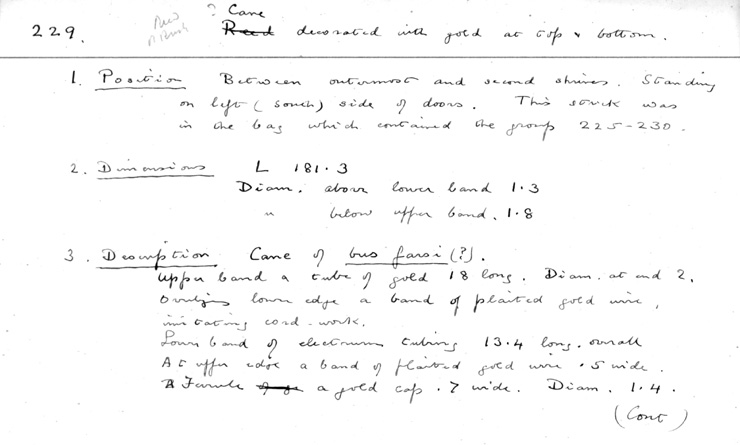 ? Cane
229. Reed decorated with gold at top & bottom.
1. Position Between outermost and second shrines. Standing
on left (south) side of doors. This stick was
in the bag which contained the group 225-230.
2. Dimensions L 181.3
Diam. above lower band 1.3
" below upper band. 1.8
3. Description Cane of bus farsi (?).
Upper band a tube of gold 18 long. Diam. at end 2.
Overlying lower edge a band of plaited gold wire,
imitating cord-work.
Lower band of electrum tubing 13.4 long. overall
At upper edge a band of plaited gold wire .5 wide.
Ferrule a gold cap .7 wide. Diam. 1.4.
(Cont)